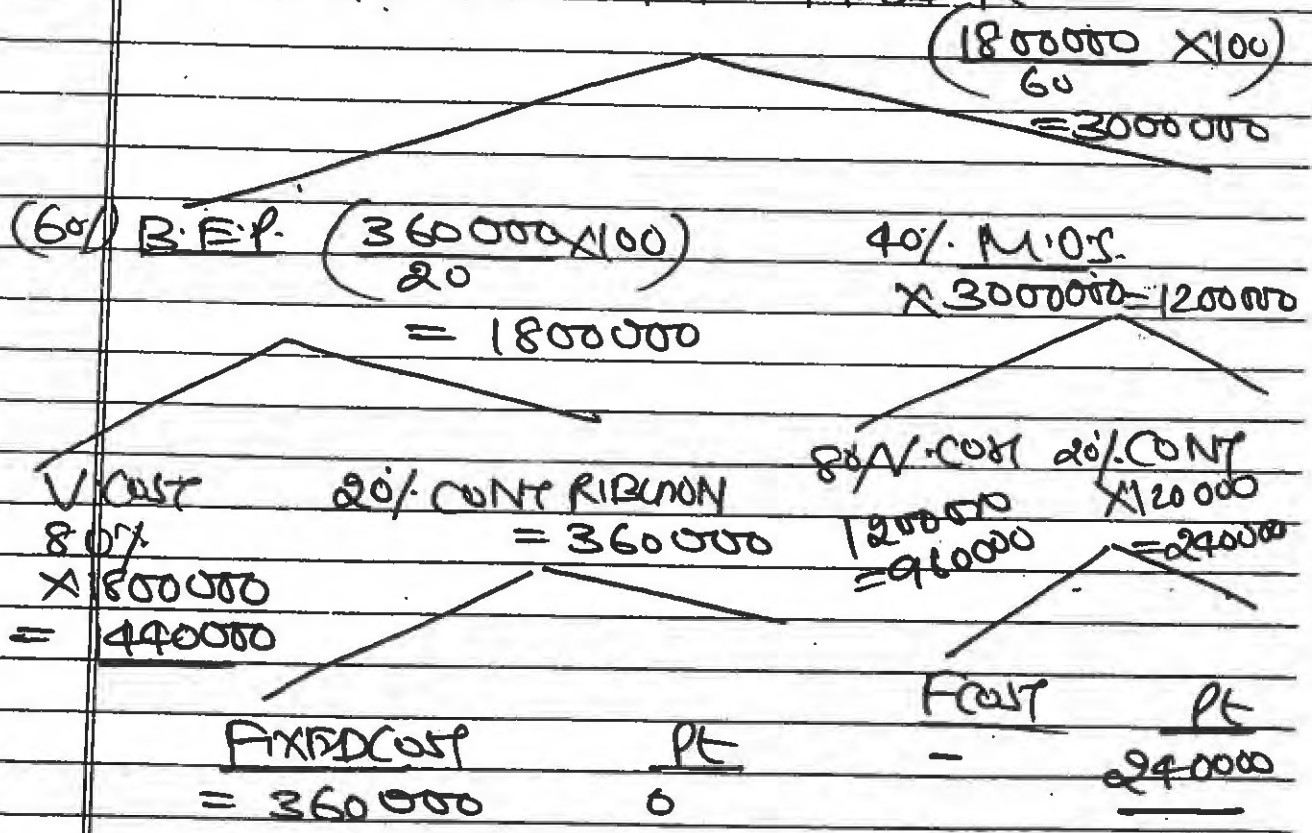 (1800000 X100)
60
= 3000000
(60%) B.E.P. (360000X100)
20
= 1800000
40%. M.O.S.
X 3000000=1200000
V.COST
80%
X1800000
= 1440000
20%. CONTRIBUTION
= 360000
80% V.COST
1200000
=960000
20%.CONT
X120000
=240000
FIXED COST
= 360000
Pt
0
FCOST
-
Pt
240000